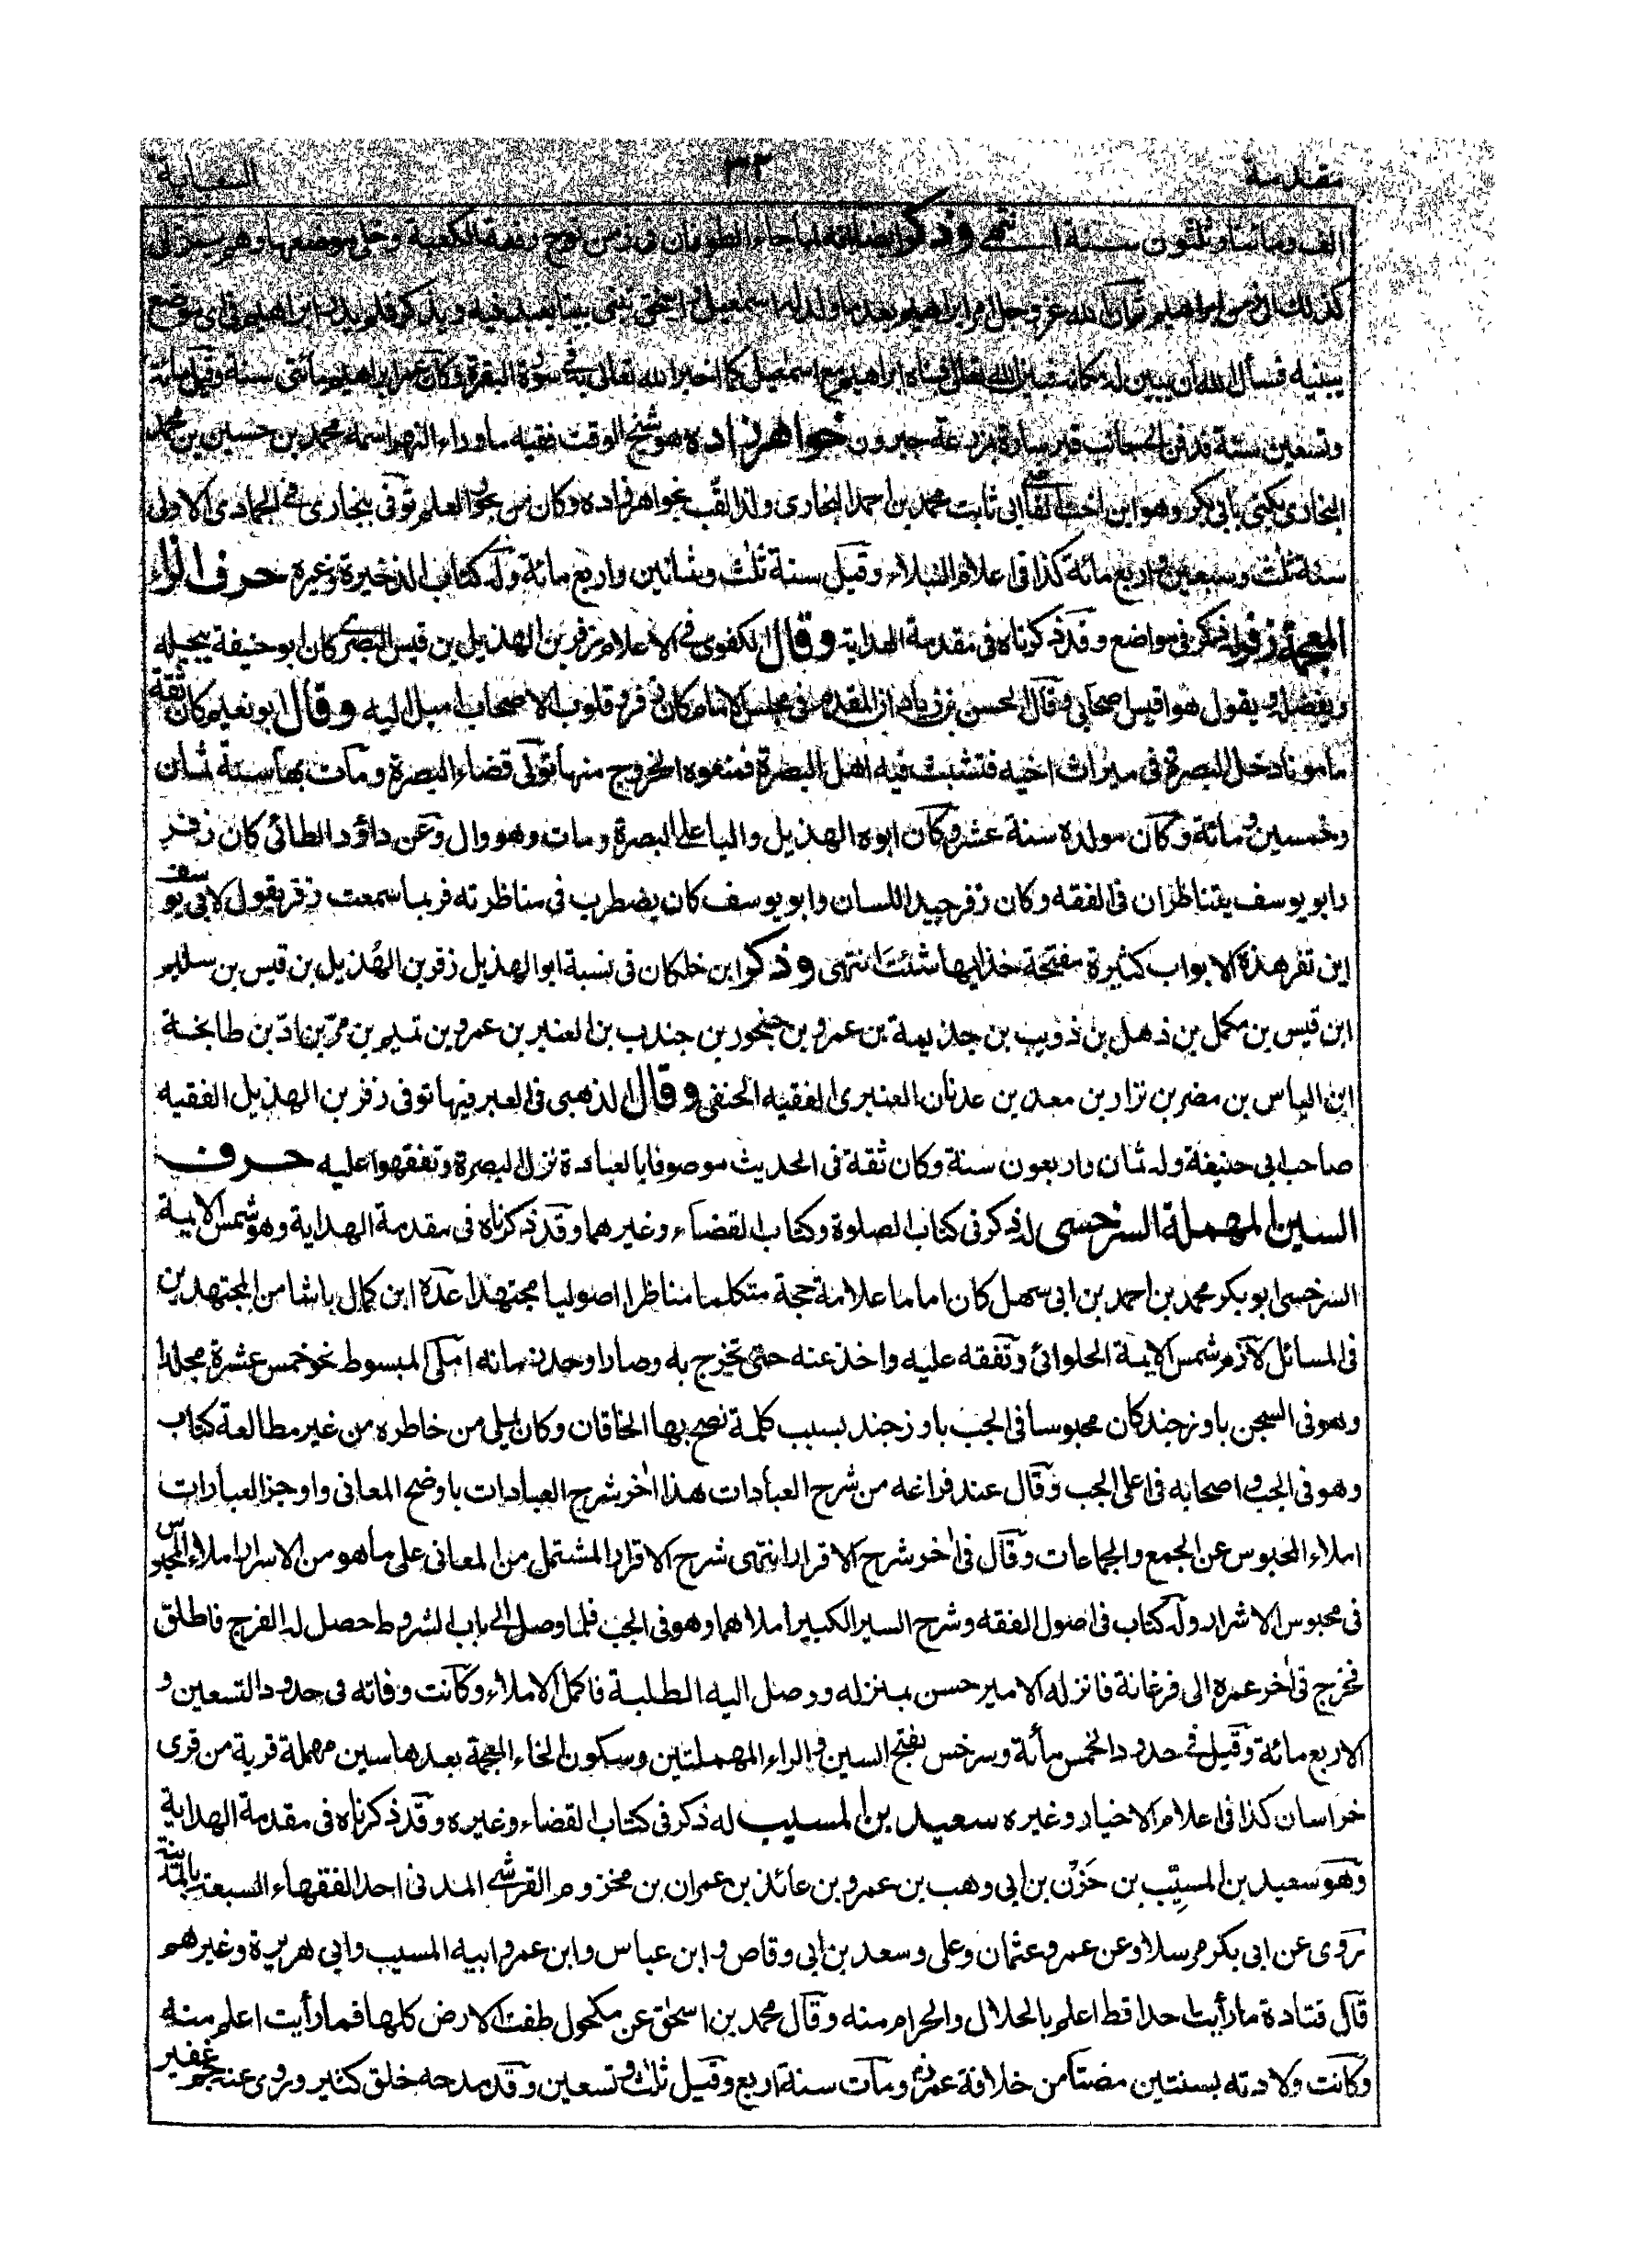 مقدمة ٣٢ السعاية
الف ومائتا وثلثون سنة انتهى وذكر ايضا انه لما جاء الطوفان فى زمن نوح رفعة الكعبة
كذلك الى زمن ابراهيم ثم ان الله عز وجل امر ابراهيم بعد ما ولد له اسمعيل واسحق ببنى بيتا يعبد فيه ويذكر فلم يدر ابراهيم فى اى موضع
يبنيه فسأل الله ان يبين له مكانه فبناه ابراهيم مع اسمعيل كما اخبر الله تعالى به فى سورة البقرة وكان عمر ابراهيم مائتى سنة وقيل مائة
وتسعين سنة فدفن بجانب قبر سارة بمزرعة حبرون خواهر زاده هو شيخ الوقت فقيه ما وراء النهر اسمه محمد بن حسين بن محمد
البخارى يكنى بابى بكر وهو ابن اخت القاضى ابى ثابت محمد بن احمد البخارى ولذا لقب بخواهر زاده وكان من بحور العلم توفى ببخارى فى الجمادى الاولى
سنة ثلث وسبعين واربع مائة كذا فى اعلام النبلاء وقيل سنة ثلث وثمانين واربع مائة وله كتاب الذخيرة وغيره حرف الزاء
المعجمة زفر له ذكر فى مواضع وقد ذكرناه فى مقدمة الهداية وقال الكفوى فى الاعلام زفر بن الهذيل بن قيس البصرى كان ابو حنيفة يبجله
ويفضله ويقول هو اقيس اصحابى وقال الحسن بن زياد ان المقدم فى مجلس الامام كان زفر وقلوب الاصحاب اميل اليه وقال ابو نعيم كان ثقة
مامونا دخل البصرة فى ميراث اخيه فتشبث فيه اهل البصرة فمنعوه الخروج منها تولى قضاء البصرة ومات بها سنة ثمان
وخمسين ومائة وكان مولده سنة عشر وكان ابوه الهذيل واليا على البصرة ومات وهو وال وعن داؤد الطائى كان زفر
وابو يوسف يتناظران فى الفقه وكان زفر جيد اللسان وابو يوسف كان يضطرب فى مناظرته فربما سمعت زفر يقول لابى يوسف
اين تفر هذه الابواب كثيرة مفتحة خذ ايها شئت انتهى وذكر ابن خلكان فى نسبة ابو الهذيل زفر بن الهُذيل بن قيس بن سليم
ابن قيس بن مكمل بن ذهل بن ذويب بن جذيمة بن عمرو بن جنجور بن جندب بن العنبر بن عمرو بن تميم بن مرّ بن ادّ بن طابخة
ابن الياس بن مضر بن نزار بن معد بن عدنان العنبرى الفقيه الحنفى وقال الذهبى فى العبر فيها توفى زفر بن الهذيل الفقيه
صاحب ابى حنيفة وله ثمان واربعون سنة وكان ثقة فى الحديث موصوفا بالعبادة نزل البصرة وتفقهوا عليه حرف
السين المهملة السرخسى له ذكر فى كتاب الصلوة وكتاب القضاء وغيرهما وقد ذكرناه فى مقدمة الهداية وهو شمس الايمة
السرخسى ابو بكر محمد بن احمد بن ابى سهل كان اماما علامة حجة متكلما مناظرا اصوليا مجتهدا عده ابن كمال باشا من المجتهدين
فى المسائل لازم شمس الايمة الحلوائى وتفقه عليه واخذ عنه حتى تخرج به وصار اوحد زمانه املى المبسوط نحو خمس عشرة مجلدا
وهو فى السجن باوزجند كان محبوسا فى الجب باوزجند بسبب كلمة نصح بها الخاقان وكان يملى من خاطره من غير مطالعة كتاب
وهو فى الجب واصحابه فى اعلى الجب وقال عند فراغه من شرح العبادات هذا اخر شرح العبادات باوضح المعانى واوجز العبارات
املاء المحبوس عن الجمع والجماعات وقال فى اخر شرح الاقرار انتهى شرح الاقرار المشتمل من المعانى على ما هو من الاسرار املاء المحبوس
فى محبوس الاشرار وله كتاب فى اصول الفقه وشرح السير الكبير أملاهما وهو فى الجب فلما وصل الى باب الشروط حصل له الفرج فاطلق
فخرج فى اخر عمره الى فرغانة فانزله الامير حسن بمنزله ووصل اليه الطلبة فاكمل الاملاء وكانت وفاته فى حدود التسعين و
الاربع مائة وقيل فى حدود الخمس مأئة وسرخس بفتح السين والراء المهملتين وسكون الخاء المعجمة بعدها سين مهملة قرية من قرى
خراسان كذا فى اعلام الاخيار وغيره سعيد بن المسيب له ذكر فى كتاب القضاء وغيره وقد ذكرناه فى مقدمة الهداية
وهو سعيد بن المسيِّب بن حَزْن بن ابى وهب بن عمرو بن عائذ بن عمران بن مخزوم القرشى المدنى احد الفقهاء السبعة بالمدينة
روى عن ابى بكر مرسلا وعن عمر وعثمان وعلى وسعد بن ابى وقاص وابن عباس وابن عمر وابيه المسيب وابى هريرة وغيرهم
قال قتادة ما رأيت احدا قط اعلم بالحلال والحرام منه وقال محمد بن اسحٰق عن مكحول طفت الارض كلها فما رأيت اعلم منه
وكانت ولادته بسنتين مضتا من خلافة عمر ومات سنة اربع وقيل ثلث وتسعين وقد مدحه خلق كثير وروى عنه جم غفير